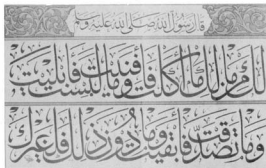 قال رسول الله صلى الله عليه وسلم
من مالك ما أكلت فأفنيت وما لبست فأبليت
وما تصدقت فأبقيت وما دون ذلك فلغيرك